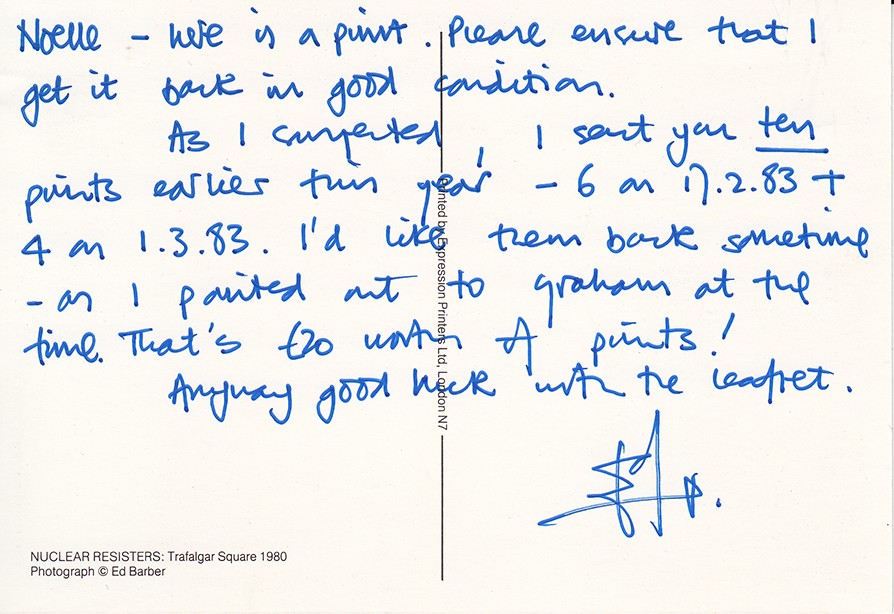 Noelle – here is a print. Please ensure that I
get it back in good condition.
As I suspected, I sent you ten
prints earlier this year – 6 on 17.2.83 +
4 on 1.3.83. I'd like them back sometime
– as I pointed out to graham at the
time. That's £20 worth of prints!
Anyway good luck with the leaflet.
Printed by Expression Printers Ltd, London N7
NUCLEAR RESISTERS: Trafalgar Square 1980
Photograph © Ed Barber